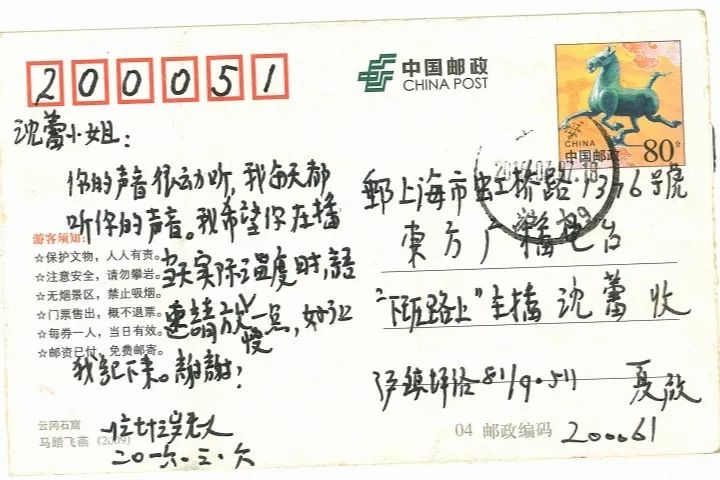 200051
中国邮政
CHINA POST
CHINA
中国邮政
80分
沈蕾小姐：
你的声音很动听，我每天都
听你的声音。我希望你在播
当天实际温度时，語
速請放慢一点，好让
我記下来。謝謝！
一位七十三岁老人
二〇一六.三.六
游客须知：
☆保护文物，人人有责。
☆注意安全，请勿攀岩。
☆无烟景区，禁止吸烟。
☆门票售出，概不退票。
☆每券一人，当日有效。
☆邮资已付，免费邮寄。
云冈石窟
马踏飞燕 (2009)
郵上海市虹桥路1376号
東方广播电台
"下班路上"主播 沈蕾 收
沪鎮坪路81/9.511 夏啟
04 邮政编码 200061